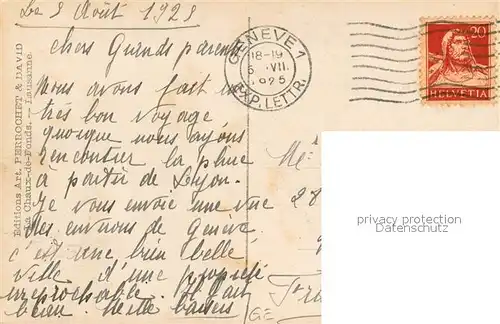 Le 5 Août 1925
chers Grands parents
Nous avons fait un
très bon voyage
quoique nous ayons
rencontrer la pluie
à partir de Lyon.
Je vous envoie une vue
des environs de Genève
c'est une bien belle
ville d'une propreté
irreprochable. Il fait
beau. Mille baisers
Editions Art. PERROCHET & DAVID
La Chaux-de-Fonds. — Lausanne.
GENÈVE 1
18-19
VII.
1925
EXP. LETTR.
20
HELVETIA
28
privacy protection
GE